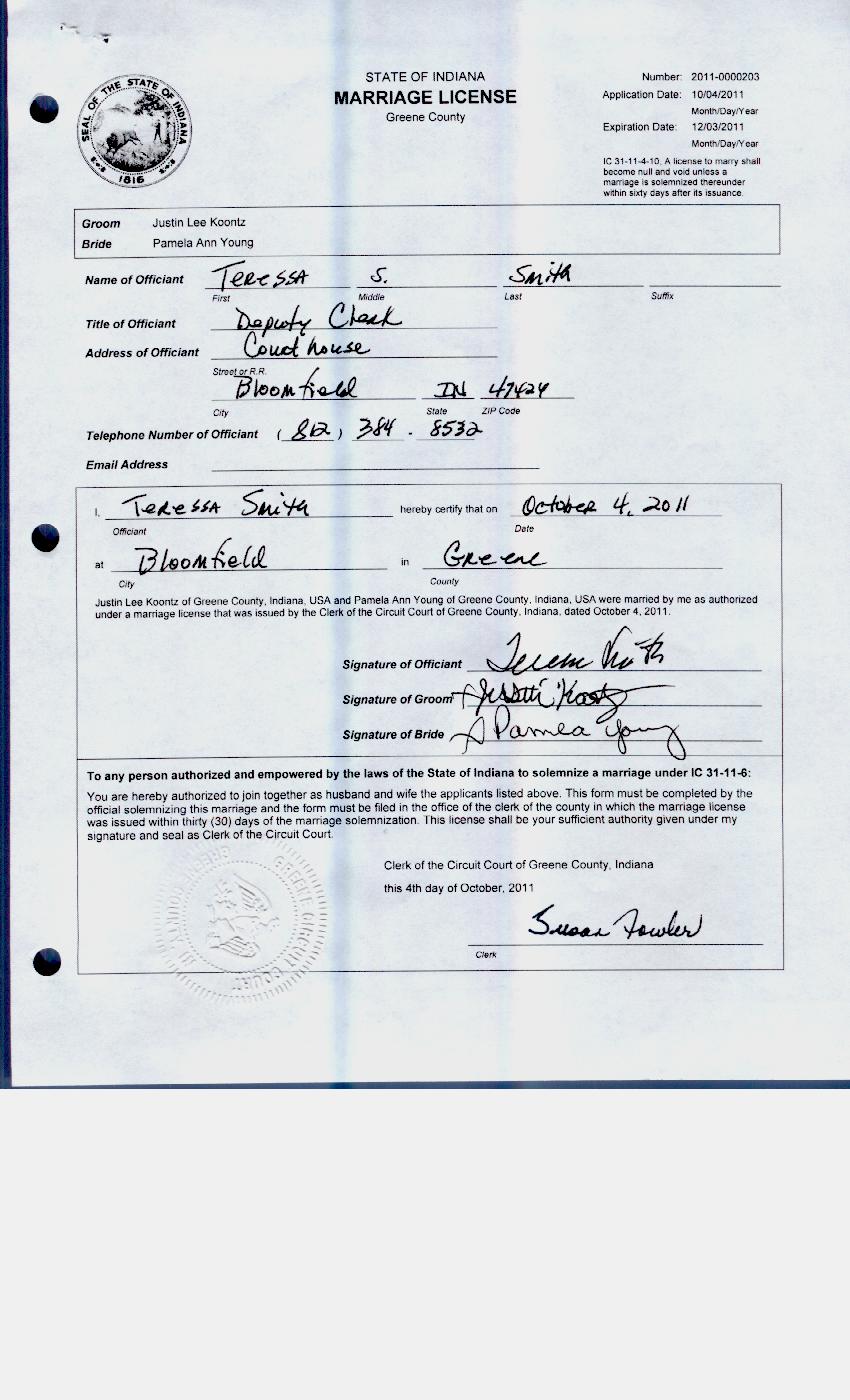 SEAL OF THE STATE OF INDIANA
1816
STATE OF INDIANA
MARRIAGE LICENSE
Greene County
Number: 2011-0000203
Application Date: 10/04/2011
Month/Day/Year
Expiration Date: 12/03/2011
Month/Day/Year
IC 31-11-4-10, A license to marry shall
become null and void unless a
marriage is solemnized thereunder
within sixty days after its issuance.
Groom Justin Lee Koontz
Bride Pamela Ann Young
Name of Officiant Teressa S. Smith
First Middle Last Suffix
Title of Officiant Deputy Clerk
Address of Officiant Courthouse
Street or R.R.
Bloomfield IN 47424
City State ZIP Code
Telephone Number of Officiant (812) 384 - 8532
Email Address
I, Teressa Smith hereby certify that on October 4, 2011
Officiant Date
at Bloomfield in Greene
City County
Justin Lee Koontz of Greene County, Indiana, USA and Pamela Ann Young of Greene County, Indiana, USA were married by me as authorized
under a marriage license that was issued by the Clerk of the Circuit Court of Greene County, Indiana, dated October 4, 2011.
Signature of Officiant Teressa Smith
Signature of Groom Justin Koontz
Signature of Bride Pamela Young
To any person authorized and empowered by the laws of the State of Indiana to solemnize a marriage under IC 31-11-6:
You are hereby authorized to join together as husband and wife the applicants listed above. This form must be completed by the
official solemnizing this marriage and the form must be filed in the office of the clerk of the county in which the marriage license
was issued within thirty (30) days of the marriage solemnization. This license shall be your sufficient authority given under my
signature and seal as Clerk of the Circuit Court.
GREENE CIRCUIT COURT
Clerk of the Circuit Court of Greene County, Indiana
this 4th day of October, 2011
Susan Fowler
Clerk